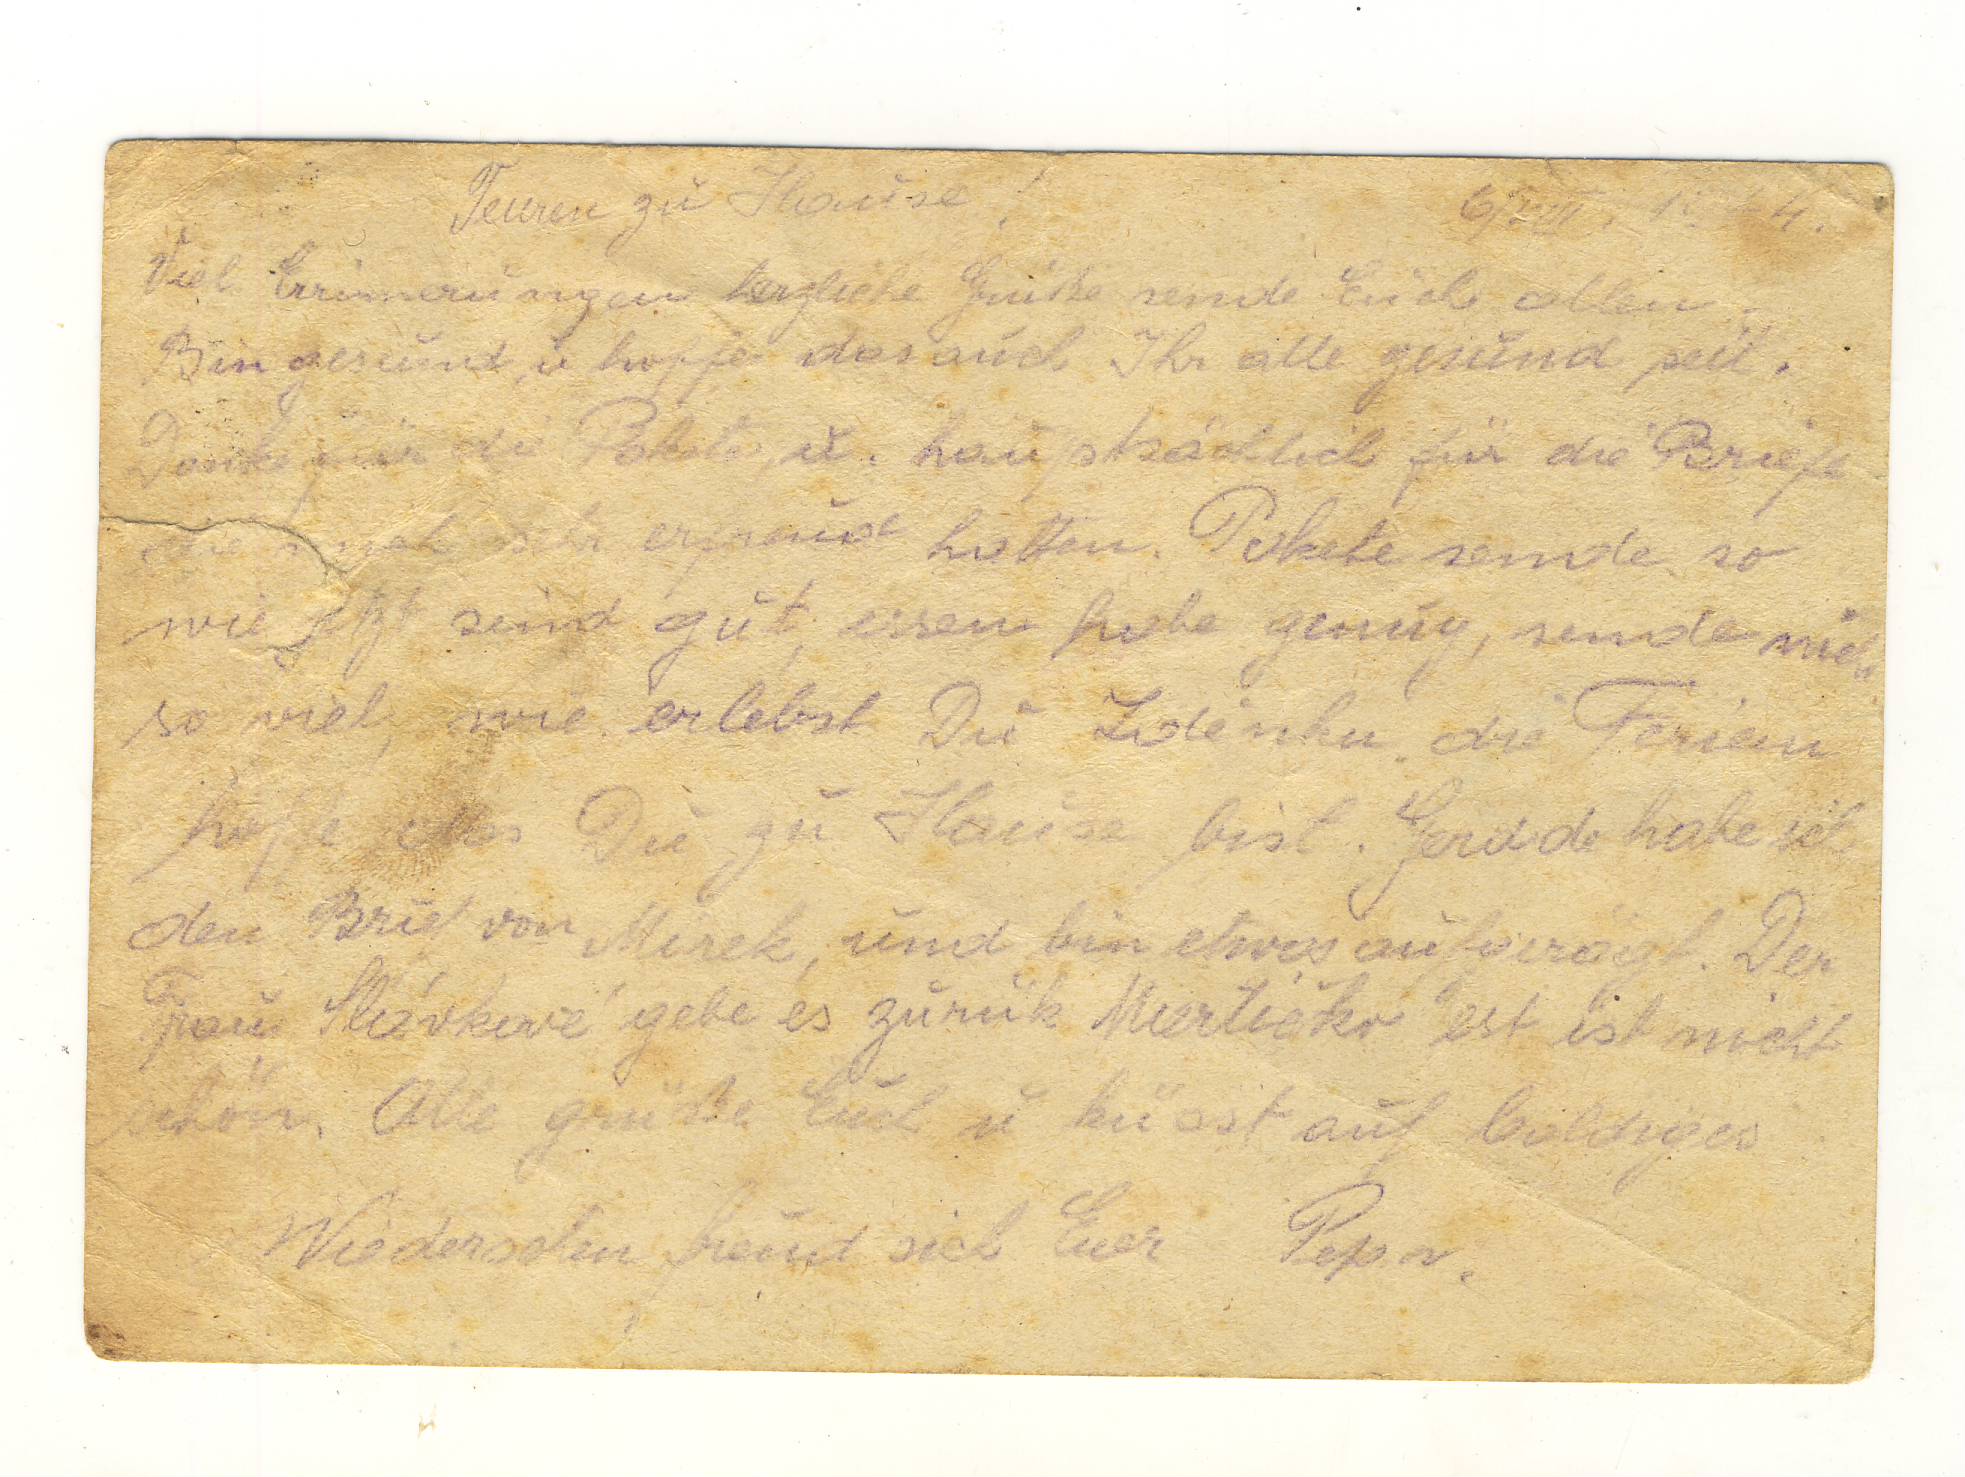 Teuren zu Hause!
6/VIII 1944.
Viel Errinerungen herzliche Grüße sende Euch allen.
Bin gesund, u hoffe das auch Ihr alle gesund seit.
Danke für die Pakete, u. hauptsächlich für die Briefe
die mich sehr erfreud hatten. Pakete sende so
wie jetzt sind gut, essen habe genug, sende nicht
so viel, wie erlebst Du Zdenku die Ferien
hoffe das Du zu Hause bist. Gerade habe ich
den Brief von Mirek, und bin etwas aufgerägt. Der
Frau Slávkové gebe es zurük est ist nicht
schön. Alle grüße Euch u küsst auf baldiges
Wiedersehen freud sich Euer Pepa.